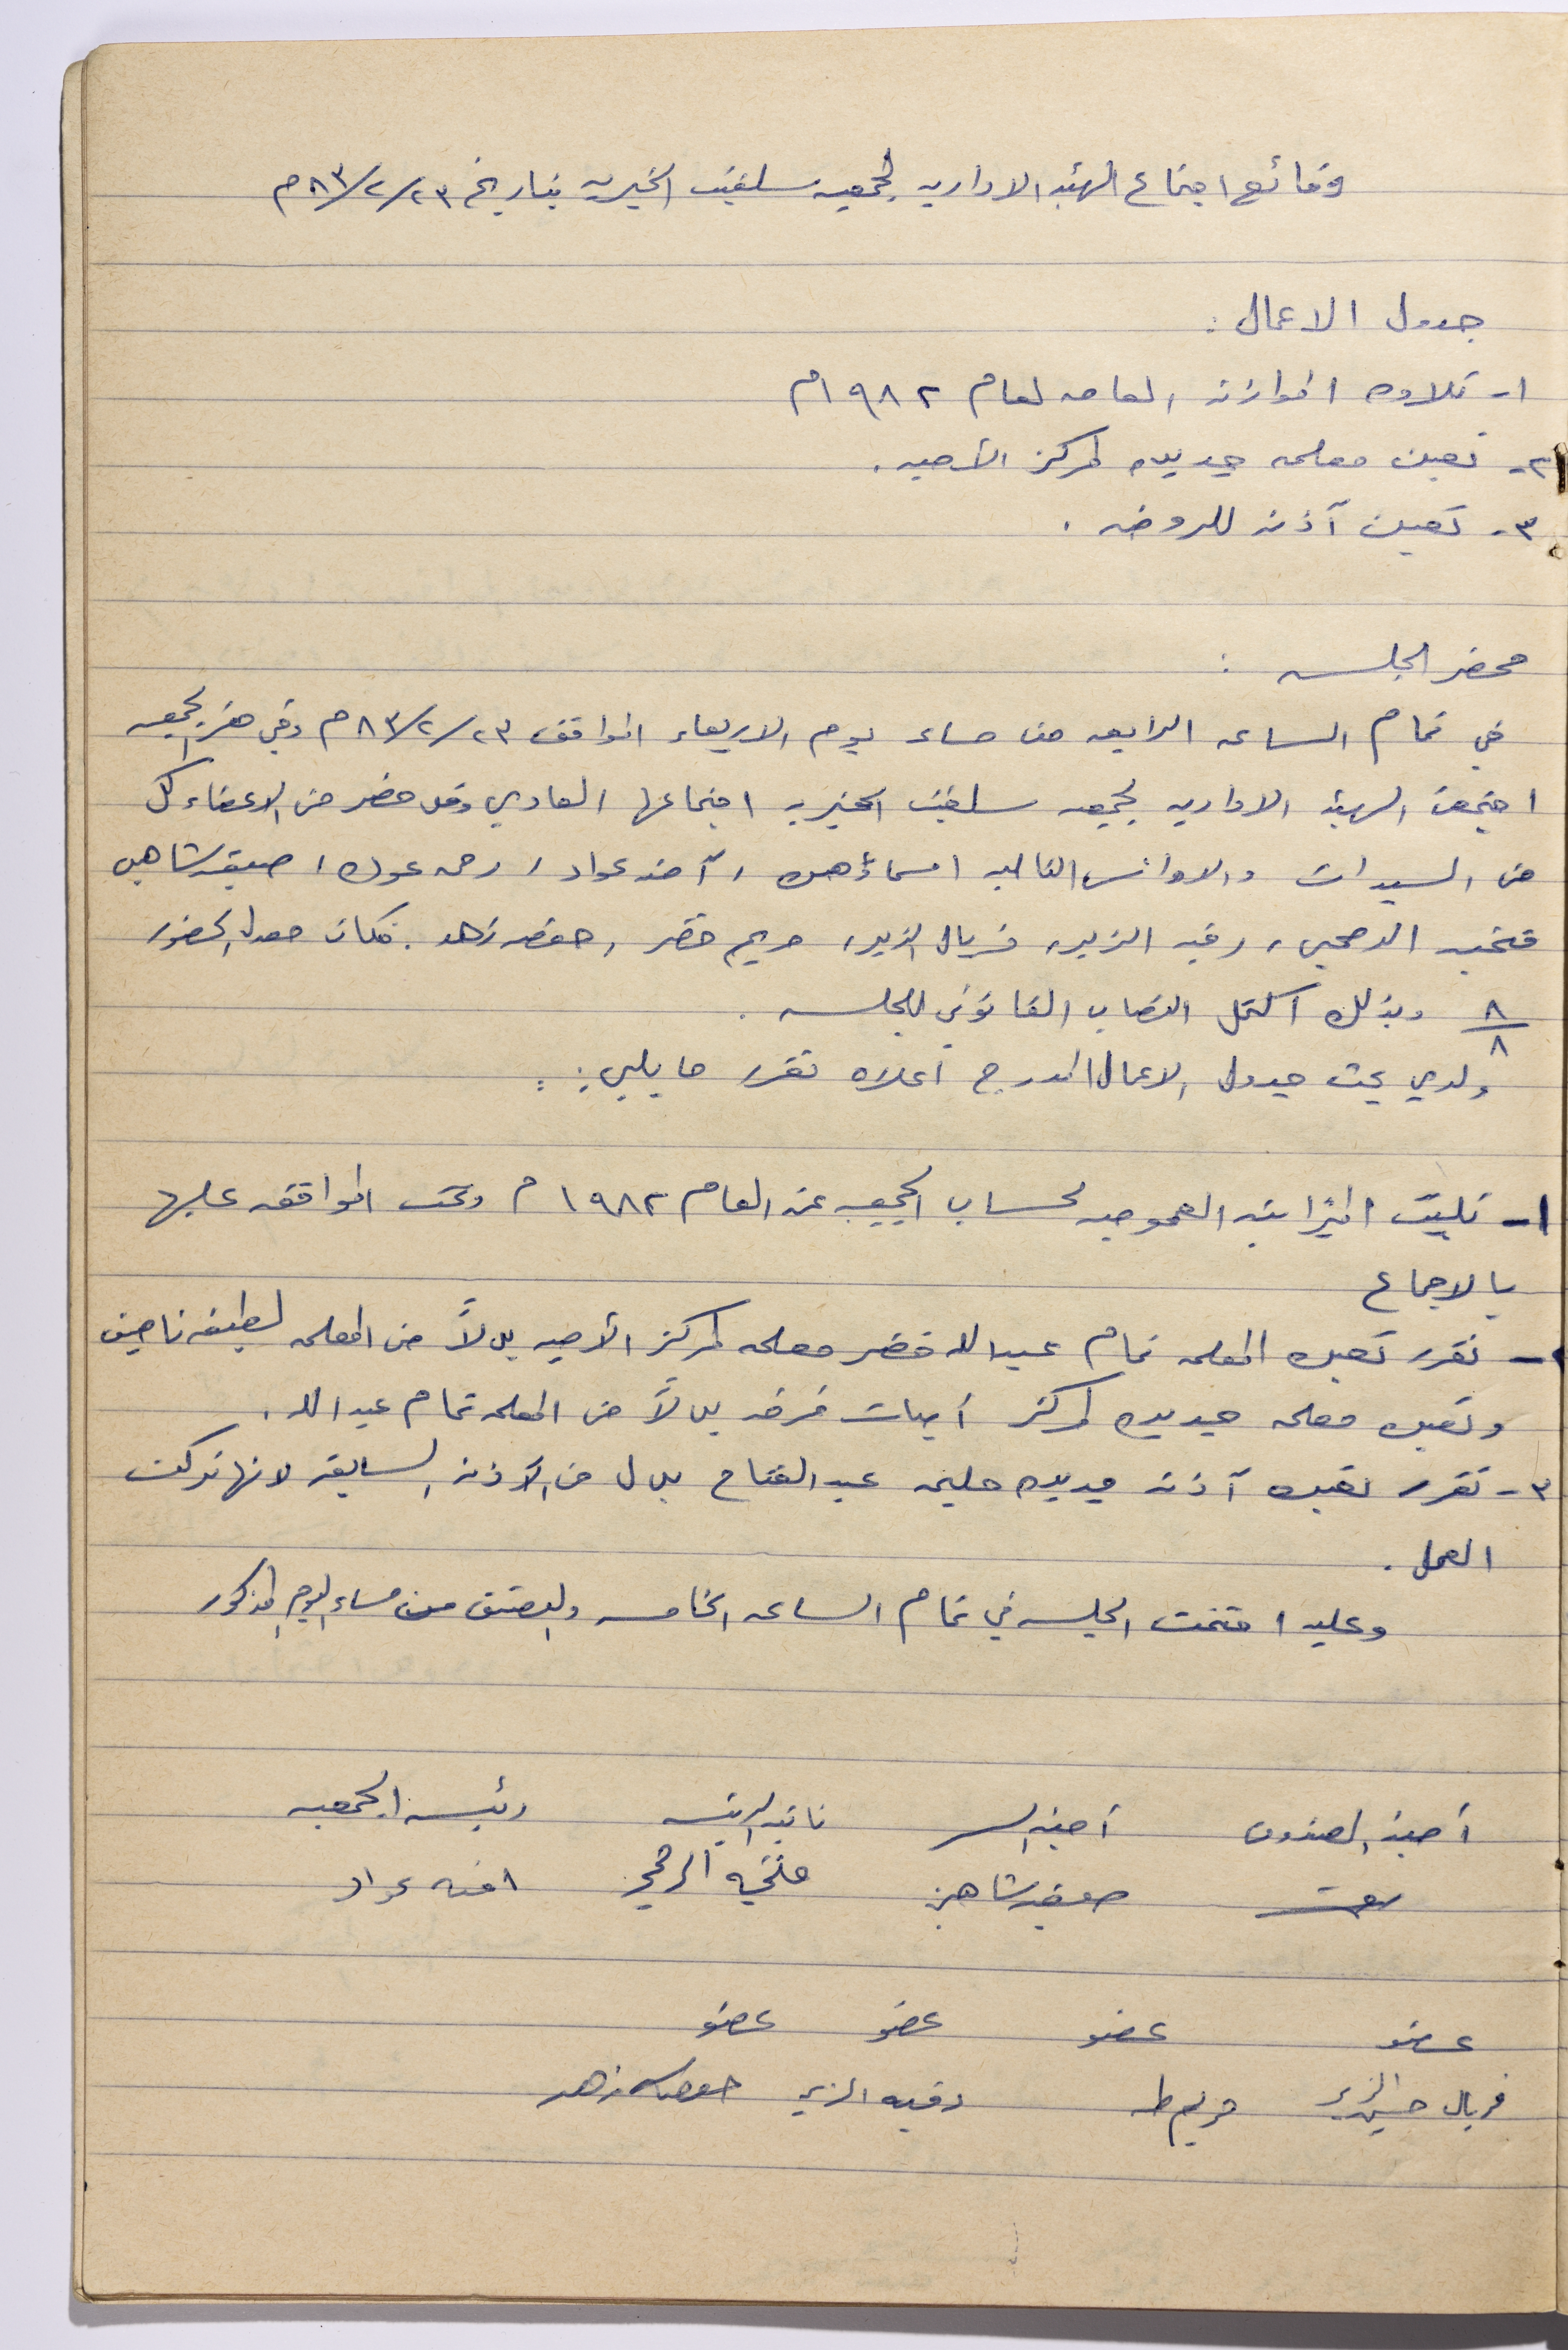 وقائع اجتماع الهيئه الاداريه لجمعيه سلفيت الخيريه بتاريخ ٢٣/٢/٨٣م
جدول الاعمال :
١- تلاوه الموازنه العامه لعام ١٩٨٢م
٢- تعين معلمه جديده لمركز الأميه .
٣- تعين آذنه للروضه .
محضر الجلسه :
في تمام الساعه الرابعه من مساء يوم الاربعاء الموافق ٢٣/٢/٨٣م وفي مقر الجمعيه
اجتمعت الهيئه الاداريه لجمعيه سلفيت الخيريه اجتماعها العادي وقد حضر من الاعضاء كل
من السيدات والاوانس التاليه اسماؤهن ، آمنه عواد ، رحمه عوده ، صيقه شاهين
فتحيه الدمجي ، رقيه الزير ، فريال الزير ، مريم خضر ، حفصه زهد . فكان معدل الحضور
٨/٨ وبذلك اكتمل النصاب القانوني للجلسه .
ولدى بحث جدول الاعمال المدرج أعلاه تقرر ما يلي :
١- تليت الميزانيه العموميه لحساب الجمعيه عن العام ١٩٨٢م وتمت الموافقه عليها
بالاجماع
٢- تقرر تعين المعلمه تمام عبد الله خضر معلمه لمركز الأميه بدلاً من المعلمه لطيفه ناصيف
وتعين معلمه جديده لمركز أميات فرخه بدلاً من المعلمه تمام عبد الله .
٣- تقرر تعين آذنه جديده حليمه عبد الفتاح بدل من الآذنه السابقه لانها تركت
العمل .
وعليه اختتمت الجلسه في تمام الساعه الخامسه والنصف من مساء اليوم المذكور
أمينة الصندوق أمينة السر نائبة الرئيسه رئيسة الجمعيه
صيقه شاهين فتحيه الدمجي امنه عواد
عضو عضو عضو عضو
فريال حسين الزير مريم طه رقيه الزير حفصه زهد